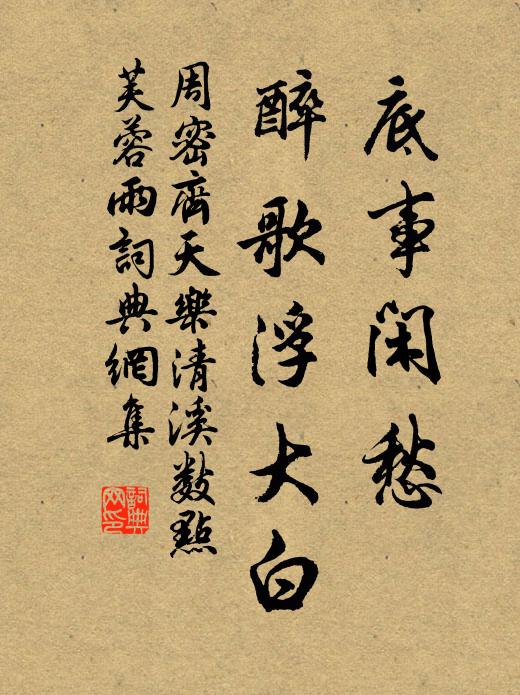 底事閑愁
醉歌浮大白
周密齊天樂清溪數點
芙蓉雨詞典網集
詞典
网印